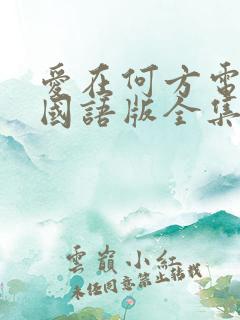 愛在何方電
國語版全集
雲巔小紅
未经同意禁止转载